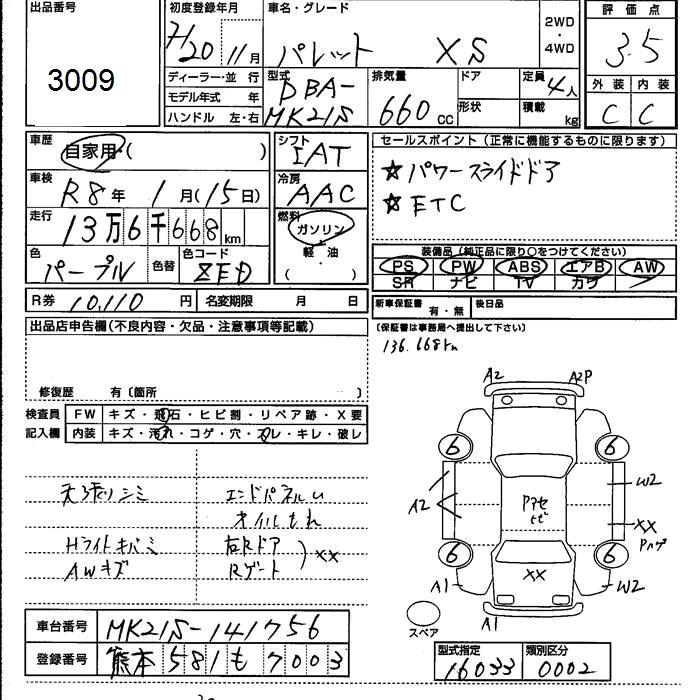 出品番号
3009
初度登録年月
H20 11月
車名・グレード
パレット XS
2WD・4WD
評価点
3.5
外装 内装
C C
ディーラー・並 行
モデル年式 年
ハンドル 左・右
型式
DBA-
MK21S
排気量
660 cc
ドア
形状
定員
4人
積載
kg
車歴
自家用・( )
車検
R8年 1月(15日)
走行
13万6千668km
色
パープル
色替
色コード
ZED
シフト
IAT
冷房
AAC
燃料
ガソリン
軽・油
( )
セールスポイント(正常に機能するものに限ります)
☆パワースライドドア
☆ETC
装備品(純正品に限り○をつけてください)
PS PW ABS エアB AW
SR ナビ TV カワ
R券 10,110 円 名変期限 月 日
新車保証書 有・無 後日品
(保証書は事務局へ提出して下さい)
136.668km
出品店申告欄(不良内容・欠品・注意事項等記載)
修復歴 有〔箇所 〕
検査員 FW キズ・飛石・ヒビ割・リペア跡・X要
記入欄 内装 キズ・汚れ・コゲ・穴・スレ・キレ・破レ
天張リシミ エンドパネルU
オイルもれ
Hライトキバミ 右Rドア
AWキズ Rゲート ××
A2 A2P
6 6
A2 W2
Pアセ
ヒビ
×× Pハゲ
6 6
××
A1 W2
A1
スペア
車台番号 MK21S-141756
登録番号 熊本 581 も 7003
型式指定 類別区分
16033 0002